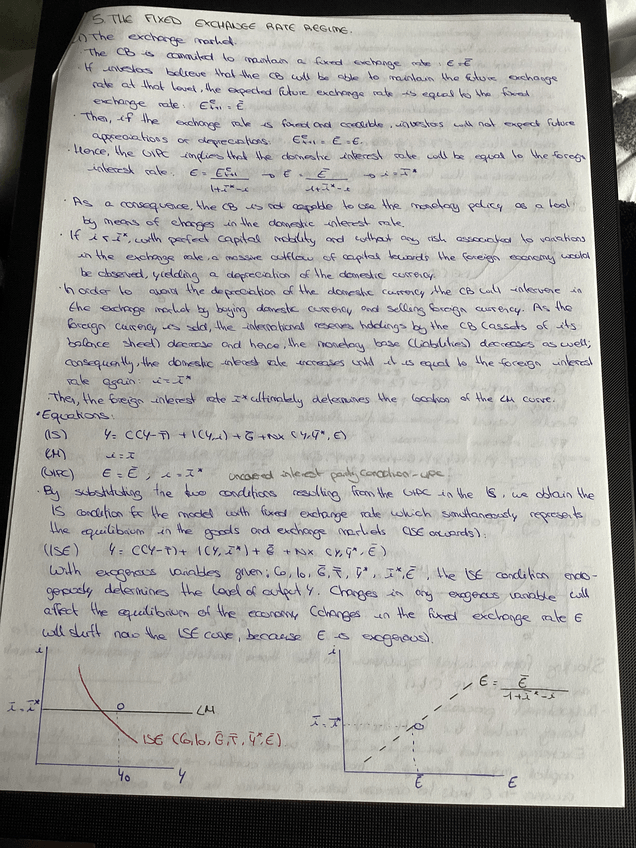 5. THE FIXED EXCHANGE RATE REGIME.
1) The exchange market.
The CB is commuted to maintain a fixed exchange rate: E = Ē
If investors believe that the CB will be able to maintain the future exchange
rate at that level, the expected future exchange rate is equal to the fixed
exchange rate: Eᵉₜ₊₁ = Ē
· Then, if the exchange rate is fixed and credible, investors will not expect future
appreciations or depreciations. Eᵉₜ₊₁ = Ē = E.
· Hence, the UIPC implies that the domestic interest rate will be equal to the foreign
interest rate: E = Eᵉₜ₊₁ / 1+i*-i → E = Ē / 1+i*-i → i = i*
· As a consequence, the CB is not capable to use the monetary policy as a tool
by means of changes in the domestic interest rate.
· If i < i*, with perfect capital mobility and without any risk associated to variations
in the exchange rate, a massive outflow of capital towards the foreign economy would
be observed, yielding a depreciation of the domestic currency.
· In order to avoid the depreciation of the domestic currency, the CB will intervene in
the exchange market by buying domestic currency and selling foreign currency. As the
foreign currency is sold, the international reserves holdings by the CB (assets of its
balance sheet) decrease and hence, the monetary base (liabilities) decreases as well;
consequently, the domestic interest rate increases until it is equal to the foreign interest
rate again: i = i*
Then, the foreign interest rate i* ultimately determines the location of the LM curve.
· Equations:
(IS) Y = C(Y-T̄) + I(Y,i) + Ḡ + NX (Y,Ȳ*,E)
(LM) i = ī
(UIPC) E = Ē ; i = ī* uncovered interest parity condition - UIPC
· By substituting the two conditions resulting from the UIPC in the IS, we obtain the
IS condition for the model with fixed exchange rate which simultaneously represents
the equilibrium in the goods and exchange markets (ISE onwards):
(ISE) Y = C(Y-T̄) + I(Y,ī*) + Ḡ + NX (Y,Ȳ*,Ē)
With exogenous variables given; C₀, I₀, Ḡ, T̄, Ȳ*, ī*, Ē, the ISE condition endo-
genously determines the level of output Y. Changes in any exogenous variable will
affect the equilibrium of the economy (changes in the fixed exchange rate E
will shift now the ISE curve, because E is exogenous).
i
ī = ī*
0
LM
ISE (C₀,I₀,Ḡ,T̄,Ȳ*,Ē)
Y₀
Y
i
ī = ī*
0
E = Ē / 1+ī*-i
Ē
E